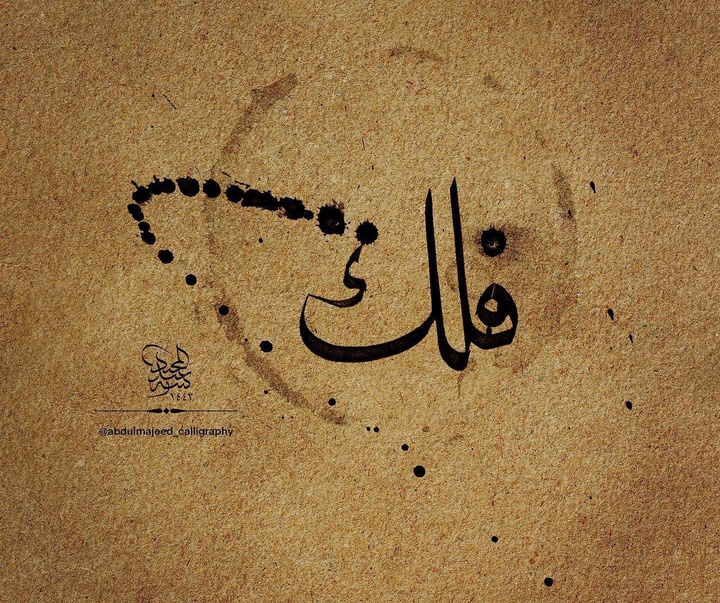 فلك
كتبه عبد المجيد
١٤٤٣
@abdulmajeed_calligraphy